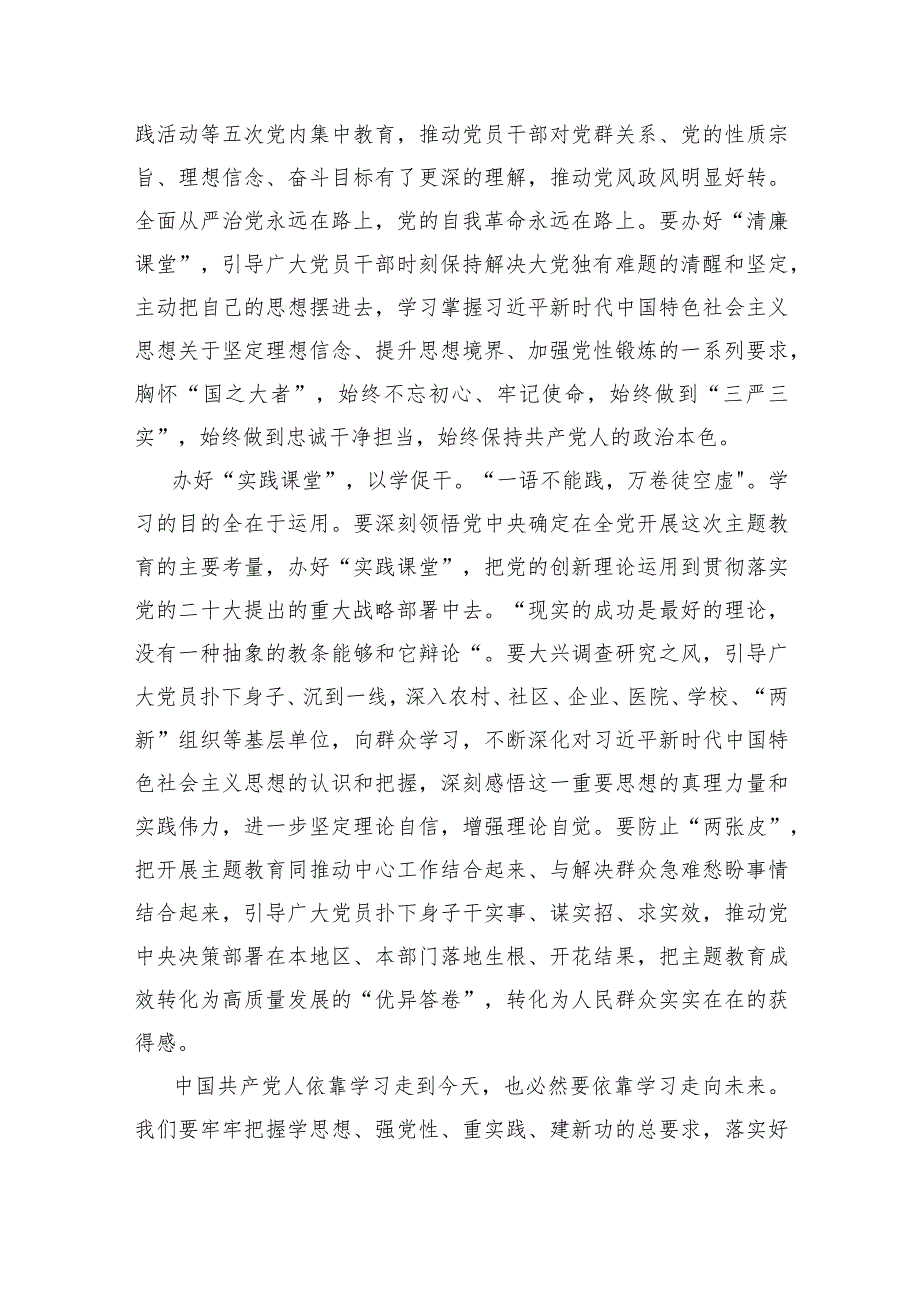 践活动等五次党内集中教育，推动党员干部对党群关系、党的性质宗
旨、理想信念、奋斗目标有了更深的理解，推动党风政风明显好转。
全面从严治党永远在路上，党的自我革命永远在路上。要办好“清廉
课堂”，引导广大党员干部时刻保持解决大党独有难题的清醒和坚定，
主动把自己的思想摆进去，学习掌握习近平新时代中国特色社会主义
思想关于坚定理想信念、提升思想境界、加强党性锻炼的一系列要求，
胸怀“国之大者”，始终不忘初心、牢记使命，始终做到“三严三
实”，始终做到忠诚干净担当，始终保持共产党人的政治本色。
办好“实践课堂”，以学促干。“一语不能践，万卷徒空虚"。学
习的目的全在于运用。要深刻领悟党中央确定在全党开展这次主题教
育的主要考量，办好“实践课堂”，把党的创新理论运用到贯彻落实
党的二十大提出的重大战略部署中去。“现实的成功是最好的理论，
没有一种抽象的教条能够和它辩论“。要大兴调查研究之风，引导广
大党员扑下身子、沉到一线，深入农村、社区、企业、医院、学校、“两
新”组织等基层单位，向群众学习，不断深化对习近平新时代中国特
色社会主义思想的认识和把握，深刻感悟这一重要思想的真理力量和
实践伟力，进一步坚定理论自信，增强理论自觉。要防止“两张皮”，
把开展主题教育同推动中心工作结合起来、与解决群众急难愁盼事情
结合起来，引导广大党员扑下身子干实事、谋实招、求实效，推动党
中央决策部署在本地区、本部门落地生根、开花结果，把主题教育成
效转化为高质量发展的“优异答卷”，转化为人民群众实实在在的获
得感。
中国共产党人依靠学习走到今天，也必然要依靠学习走向未来。
我们要牢牢把握学思想、强党性、重实践、建新功的总要求，落实好